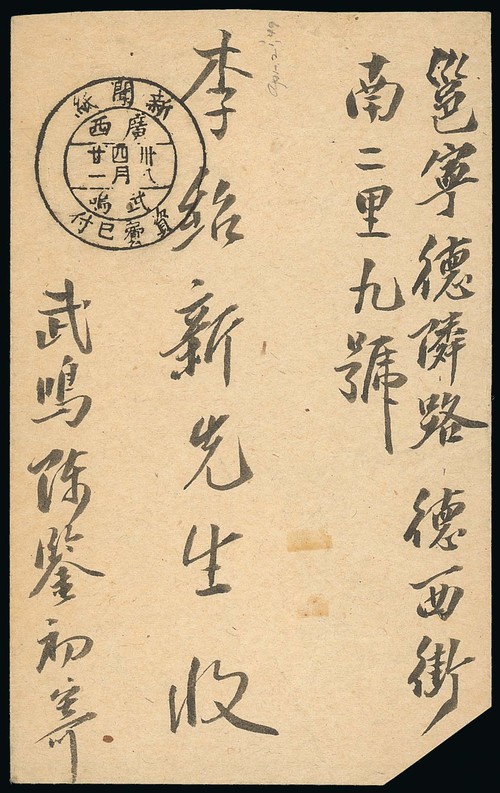 邕寧德隣路德西街
南二里九號
李紹新先生收
武鳴陳鑒初寄
新聞紙
廣西
卅八
四月
廿一
武鳴
資費已付